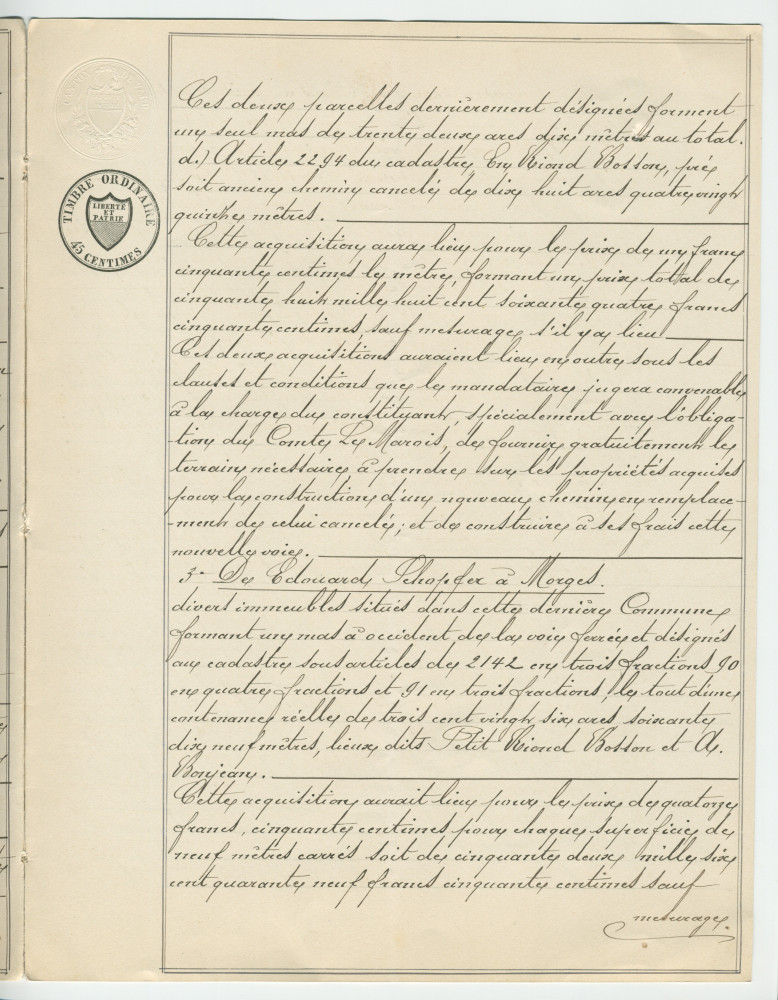 TIMBRE ORDINAIRE
LIBERTÉ
ET
PATRIE
45 CENTIMES
Ces deux parcelles dernièrement désignées forment
un seul mas de trente deux ares dix mètres au total.
d.) Article 2294 du cadastre, En Riond Bosson, pré
soit ancien chemin cancelé de dix huit ares quatre vingt
quinze mètres.
Cette acquisition aura lieu pour le prix de un franc
cinquante centimes le mètre, formant un prix total de
cinquante huit mille huit cent soixante quatre francs
cinquante centimes, sauf mesurage s'il y a lieu
Ces deux acquisitions auraient lieu en outre sous les
clauses et conditions que le mandataire jugera convenable
à la charge du constituant, spécialement avec l'obliga-
-tion du Comte Le Marois, de fournir gratuitement le
terrain nécessaire à prendre sur les propriétés acquises
pour la construction d'un nouveau chemin en remplace-
-ment de celui cancelé; et de construire à ses frais cette
nouvelle voie.
3º De Edouard Schopfer à Morges.
divers immeubles situés dans cette dernière Commune
formant un mas à occident de la voie ferrée et désignés
au cadastre sous articles de 2142 en trois fractions 90
en quatre fractions et 91 en trois fractions, le tout d'une
contenance réelle de trois cent vingt six ares, soixante
dix neuf mètres, lieux dits Petit Riond Bosson et A.
Bonjean.
Cette acquisition aurait lieu pour le prix de quatorze
francs, cinquante centimes pour chaque superficie de
neuf mètres carrés soit de cinquante deux mille six
cent quarante neuf francs cinquante centimes sauf
mesurage.